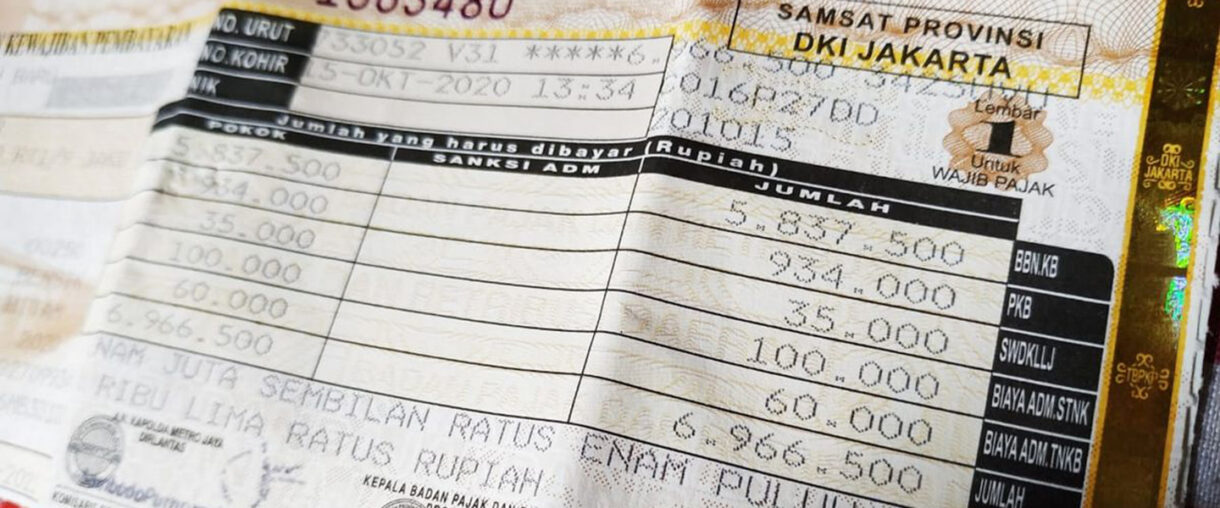 1665480
SAMSAT PROVINSI
DKI JAKARTA
KEWAJIBAN PEMBAYARAN
NO. URUT
V31 *****6.966.500
NO.KOHIR
15-OKT-2020 13:34
2016P27DD
NIK
701015
Lembar
1
Untuk
WAJIB PAJAK
DKI
JAKARTA
Jumlah yang harus dibayar (Rupiah)
POKOK SANKSI ADM JUMLAH
5.837.500 5.837.500 BBN.KB
934.000 934.000 PKB
35.000 35.000 SWDKLLJ
100.000 100.000 BIAYA ADM.STNK
60.000 60.000 BIAYA ADM.TNKB
6.966.500 6.966.500 JUMLAH
ENAM JUTA SEMBILAN RATUS ENAM PULUH
RIBU LIMA RATUS RUPIAH
KAPOLDA METRO JAYA
DIRLANTAS
KEPALA BADAN PAJAK DAN